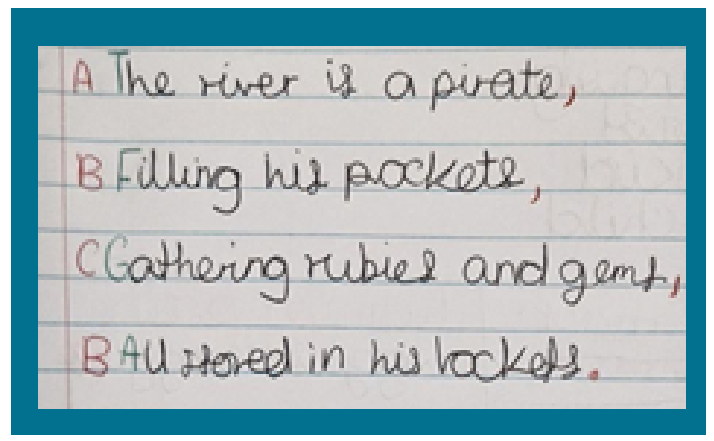 A The river is a pirate,
B Filling his pockets,
C Gathering rubies and gems,
B All stored in his lockets.